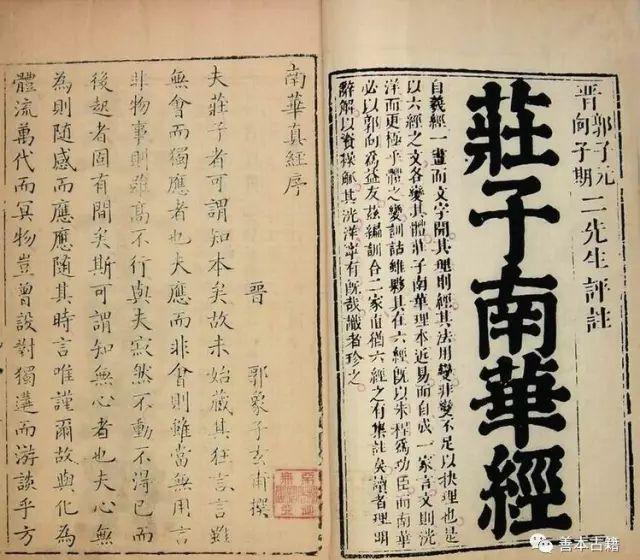 晋 郭子元 向子期 二先生評註
莊子南華經
自羲經一畫而文字開其理則經其法用變非變不足以抉理也是
以六經之文各變其體莊子南華理本近易而自成一家言文則洸
洋而更極乎體之變訓詁雖夥其在六經旣以朱程爲功臣而南華
必以郭向爲益友兹編訓合二家直猶六經之有集註矣讀者理明
辭解以資操觚其洸洋寧有旣哉識者珍之
南華真經序
晉 郭象子玄甫撰
夫莊子者可謂知本矣故未始藏其狂言言雖
無會而獨應者也夫應而非會則雖當無用言
非物事則雖高不行與夫寂然不動不得已而
後起者固有間矣斯可謂知無心者也夫心無
為則隨感而應應隨其時言唯謹爾故與化為
體流萬代而冥物豈曾設對獨遘而游談乎方
善本古籍